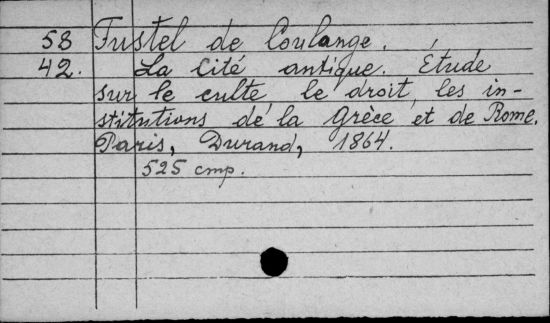 58 Fustel de Coulange.
42. La Cité antique. Étude
sur le culte, le droit, les in-
stitutions de la Grèce et de Rome.
Paris, Durand, 1864.
525 cmp.